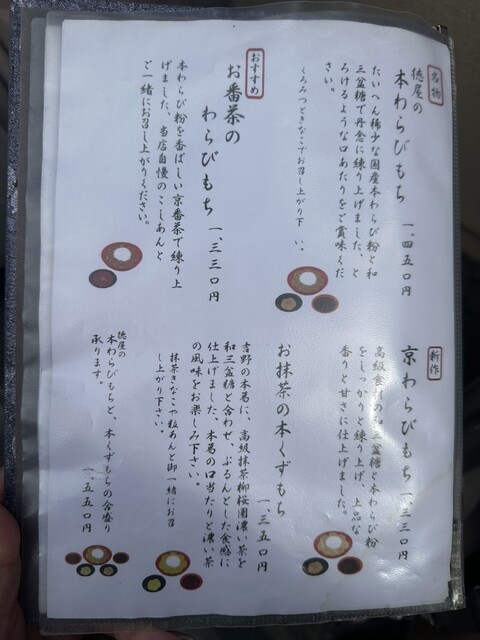 名物
徳屋の
本わらびもち 一、四五〇円
たいへん稀少な国産本わらび粉と和
三盆糖で丹念に練り上げました、と
ろけるような口あたりをご賞味くだ
さい。
くろみつときなこでお召し上がり下さい。
おすすめ
お番茶の
わらびもち 一、三三〇円
本わらび粉を香ばしい京番茶で練り上
げました、当店自慢のこしあんと
ご一緒にお召し上がりください。
新作
京わらびもち 一、三三〇円
高級食材の和三盆糖と本わらび粉
をしっかりと練り上げ、上品な
香りと甘さに仕上げました。
お抹茶の本くずもち
一、三五〇円
吉野の本葛に、高級抹茶柳桜園濃い茶を
和三盆糖と合わせ、ぷるんとした食感に
仕上げました、本葛の口当たりと濃い茶
の風味をお楽しみ下さい。
抹茶きなこや粒あんと御一緒にお召
し上がり下さい。
徳屋の
本わらびもちと、本くずもちの合盛り
承ります。
一、五五〇円